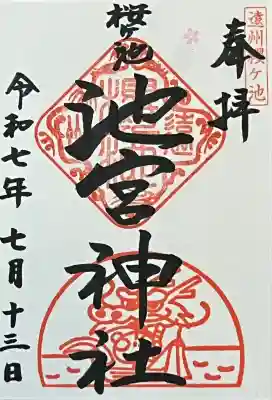 遠州桜ヶ池
奉拝
桜ヶ池
池宮神社
令和七年七月十三日